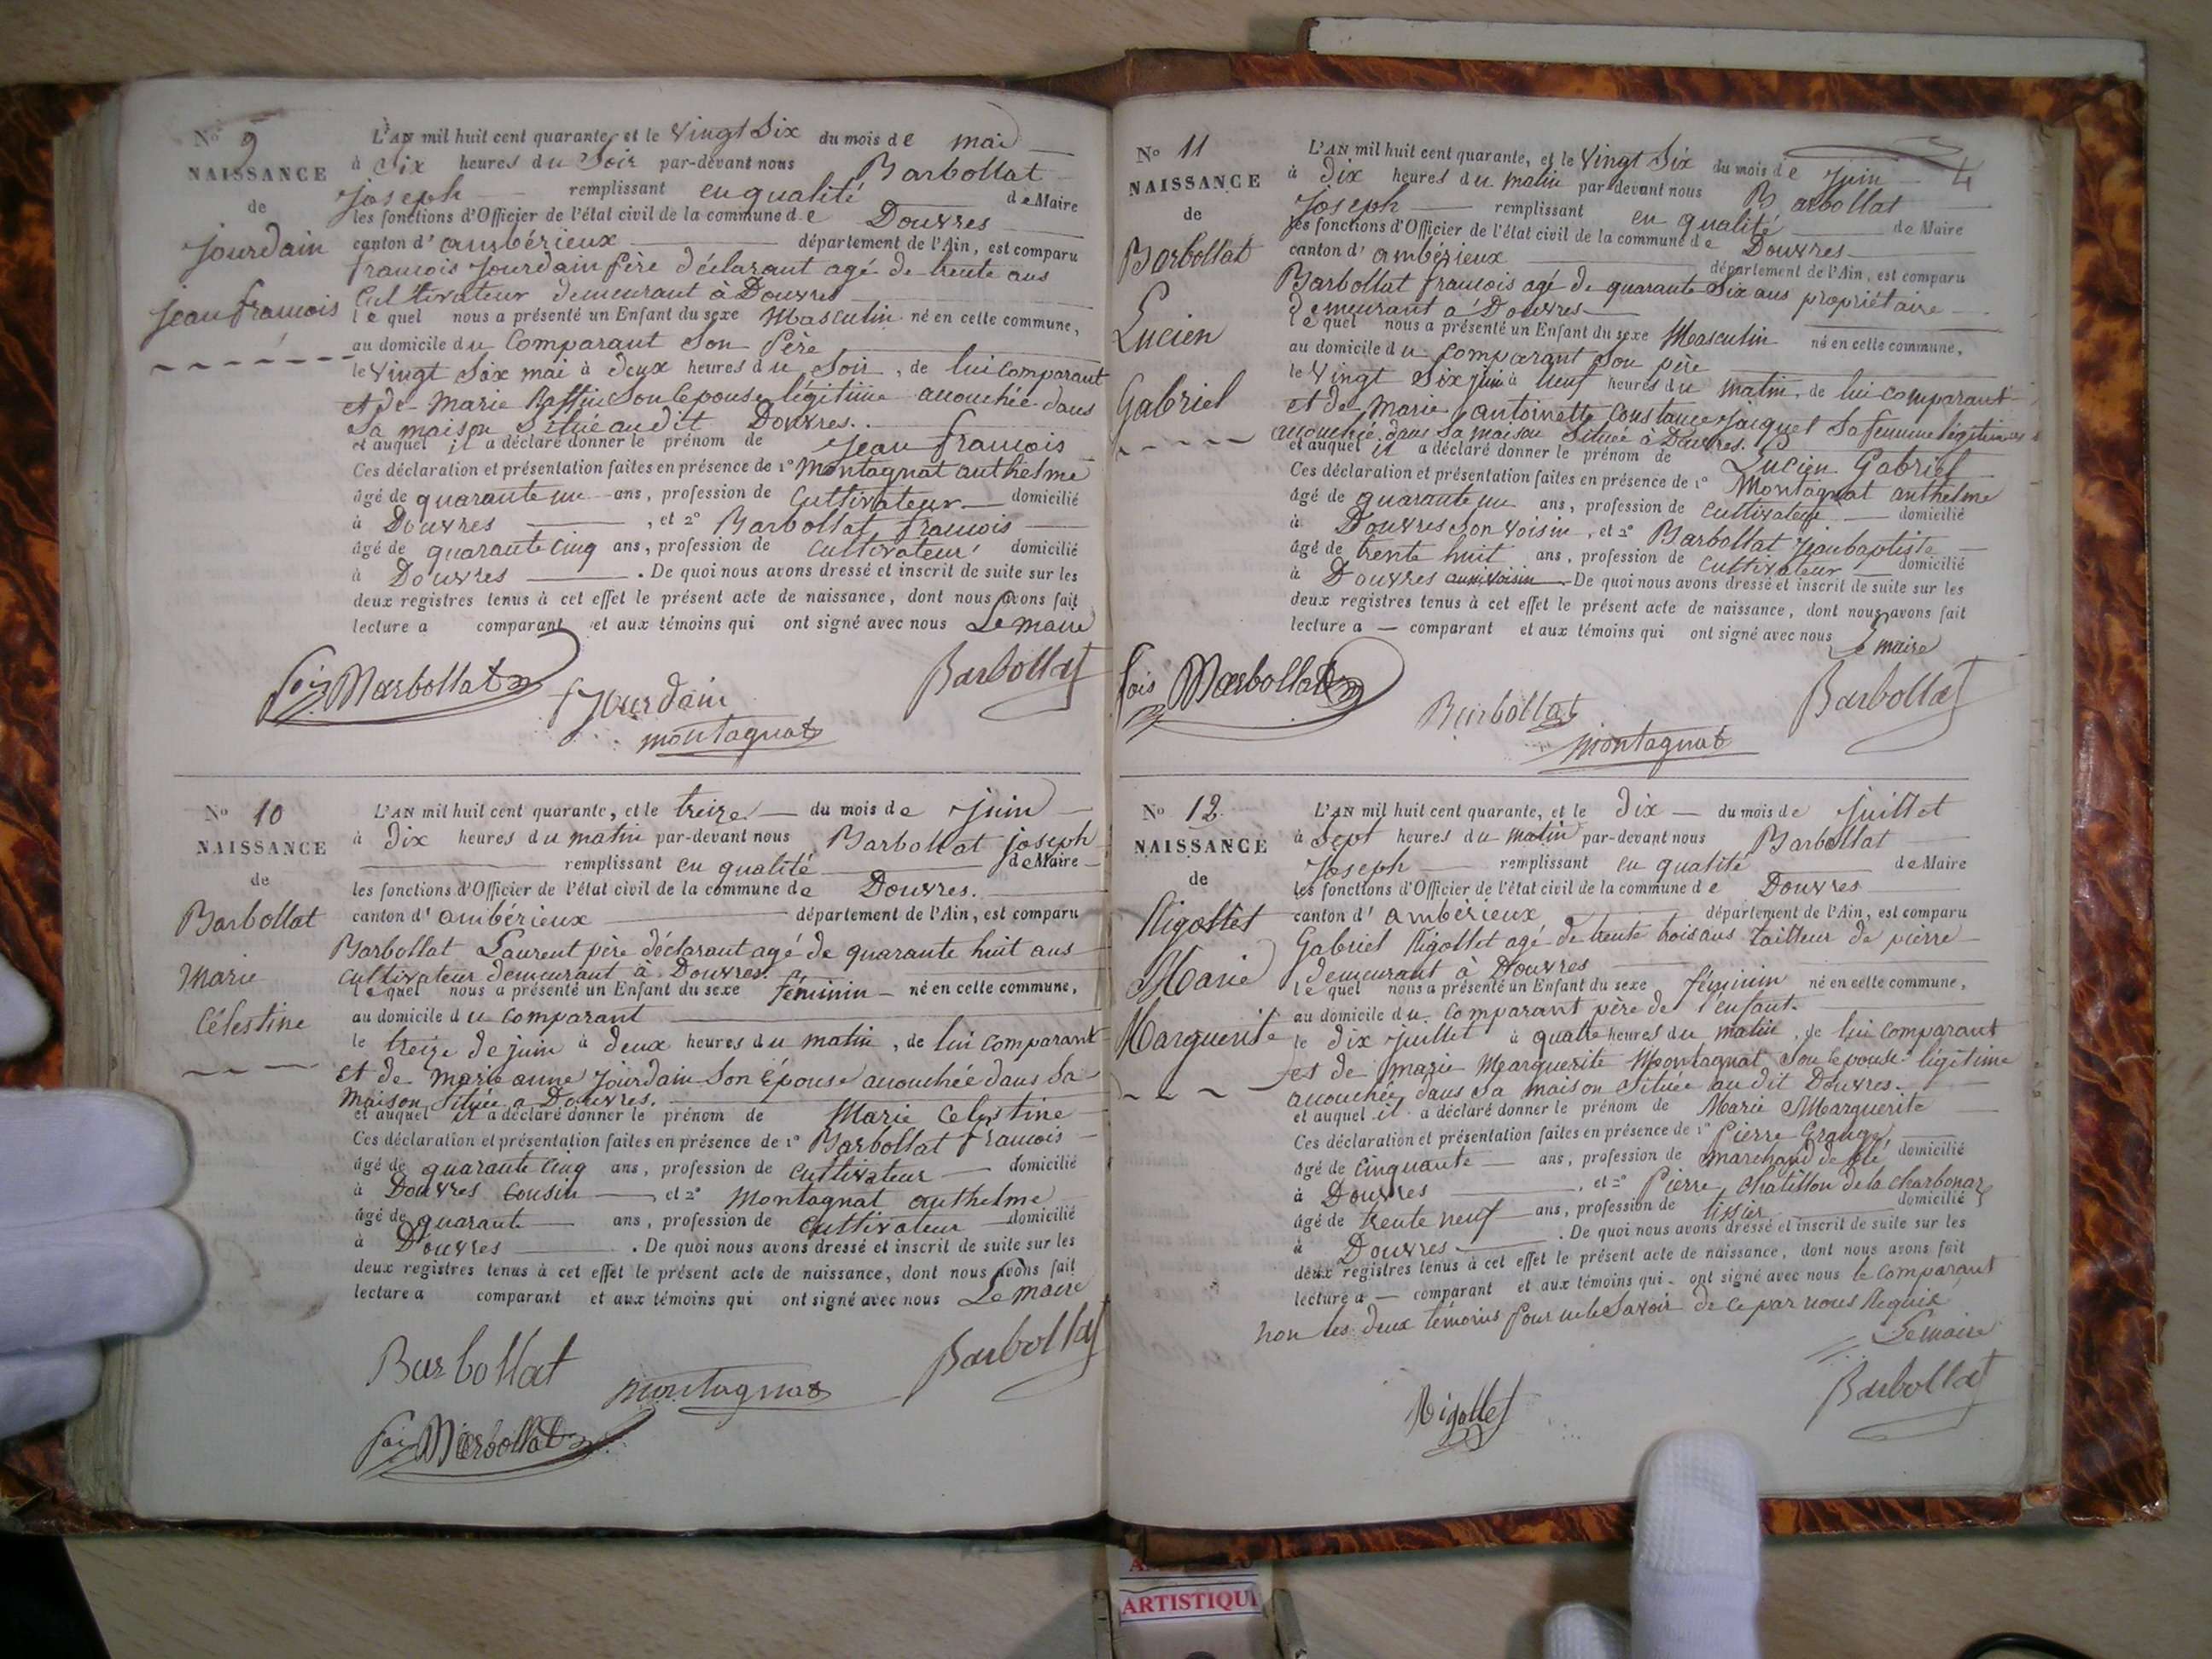 N° 9
NAISSANCE
de
Jourdain
jean francois
L'AN mil huit cent quarante, et le vingt Six du mois de mai
à Six heures du Soir par-devant nous Barbollat
joseph remplissant en qualité de Maire
les fonctions d'Officier de l'état civil de la commune de Douvres
canton d'ambérieux département de l'Ain, est comparu
francois Jourdain père déclarant agé de trente ans
Cultivateur demeurant à Douvres
lequel nous a présenté un Enfant du sexe Masculin né en cette commune,
au domicile du Comparant Son Père
le vingt Six mai à deux heures du Soir, de lui comparant
et de Marie Son Epouse légitime acouchée dans
Sa maison Située audit Douvres.
et auquel il a déclaré donner le prénom de Jean francois
Ces déclaration et présentation faites en présence de 1° Montagnat anthelme
âgé de quarante un ans, profession de Cultivateur domicilié
à Douvres, et 2° Barbollat francois
âgé de quarante Cinq ans, profession de Cultivateur domicilié
à Douvres. De quoi nous avons dressé et inscrit de suite sur les
deux registres tenus à cet effet le présent acte de naissance, dont nous avons fait
lecture a comparant et aux témoins qui ont signé avec nous Le maire
fois Barbollat
f Jourdain
Barbollat
montagnat
N° 10
NAISSANCE
de
Barbollat
Marie
Célestine
L'AN mil huit cent quarante, et le treize du mois de juin
à Dix heures du matin par-devant nous Barbollat joseph
remplissant en qualité de Maire
les fonctions d'Officier de l'état civil de la commune de Douvres.
canton d'ambérieux département de l'Ain, est comparu
Barbollat Laurent père déclarant agé de quarante huit ans
cultivateur demeurant à Douvres.
lequel nous a présenté un Enfant du sexe féminin né en cette commune,
au domicile du comparant
le treize de juin à deux heures du matin, de lui comparant
et de marie anne Jourdain Son Épouse acouchée dans Sa
maison Située a Douvres.
et auquel il a déclaré donner le prénom de Marie Celestine
Ces déclaration et présentation faites en présence de 1° Barbollat francois
âgé de quarante Cinq ans, profession de Cultivateur domicilié
à Douvres Cousin, et 2° Montagnat anthelme
âgé de quarante ans, profession de Cultivateur domicilié
à Douvres. De quoi nous avons dressé et inscrit de suite sur les
deux registres tenus à cet effet le présent acte de naissance, dont nous avons fait
lecture a comparant et aux témoins qui ont signé avec nous Le maire
Barbollat
montagnat
Barbollat
fois Barbollat
4
N° 11
NAISSANCE
de
Barbollat
Lucien
Gabriel
L'AN mil huit cent quarante, et le Vingt Six du mois de Juin
à Dix heures du matin par-devant nous Barbollat
Joseph remplissant en qualité de Maire
les fonctions d'Officier de l'état civil de la commune de Douvres
canton d'ambérieux département de l'Ain, est comparu
Barbollat francois agé de quarante Six ans propriétaire
demeurant à Douvres
lequel nous a présenté un Enfant du sexe Masculin né en cette commune,
au domicile du comparant Son père
le vingt Six juin à neuf heures du matin, de lui comparant
et de Marie antoinette Constance Jacquet Sa femme légitime
acouchée dans Sa maison Située à Douvres.
et auquel il a déclaré donner le prénom de Lucien Gabriel
Ces déclaration et présentation faites en présence de 1° Montagnat anthelme
âgé de quarante un ans, profession de cultivateur domicilié
à Douvres Son voisin, et 2° Barbollat Jean baptiste
âgé de trente huit ans, profession de Cultivateur domicilié
à Douvres aussi voisin De quoi nous avons dressé et inscrit de suite sur les
deux registres tenus à cet effet le présent acte de naissance, dont nous avons fait
lecture a comparant et aux témoins qui ont signé avec nous Le maire
fois Barbollat
Barbollat
Barbollat
montagnat
N° 12
NAISSANCE
de
Rigollet
Marie
Marguerite
L'AN mil huit cent quarante, et le Dix du mois de Juillet
à Sept heures du matin par-devant nous Barbollat
Joseph remplissant en qualité de Maire
les fonctions d'Officier de l'état civil de la commune de Douvres
canton d'ambérieux département de l'Ain, est comparu
Gabriel Rigollet agé de trente trois ans tailleur de pierre
demeurant à Douvres
lequel nous a présenté un Enfant du sexe féminin né en cette commune,
au domicile du comparant père de l'enfant.
le dix juillet à quatre heures du matin, de lui comparant
et de marie Marguerite Montagnat Son épouse légitime
acouchée dans Sa maison Située au dit Douvres.
et auquel il a déclaré donner le prénom de Marie Marguerite
Ces déclaration et présentation faites en présence de 1° Pierre Grange
âgé de Cinquante ans, profession de marchand de blé domicilié
à Douvres, et 2° Pierre Chatillon de la charbonar
âgé de trente neuf ans, profession de tissier domicilié
à Douvres. De quoi nous avons dressé et inscrit de suite sur les
deux registres tenus à cet effet le présent acte de naissance, dont nous avons fait
lecture a comparant et aux témoins qui ont signé avec nous le comparant
non les deux témoins pour ne le Savoir de ce par nous Requis
Le maire
Rigollet
Barbollat
ARTISTIQU